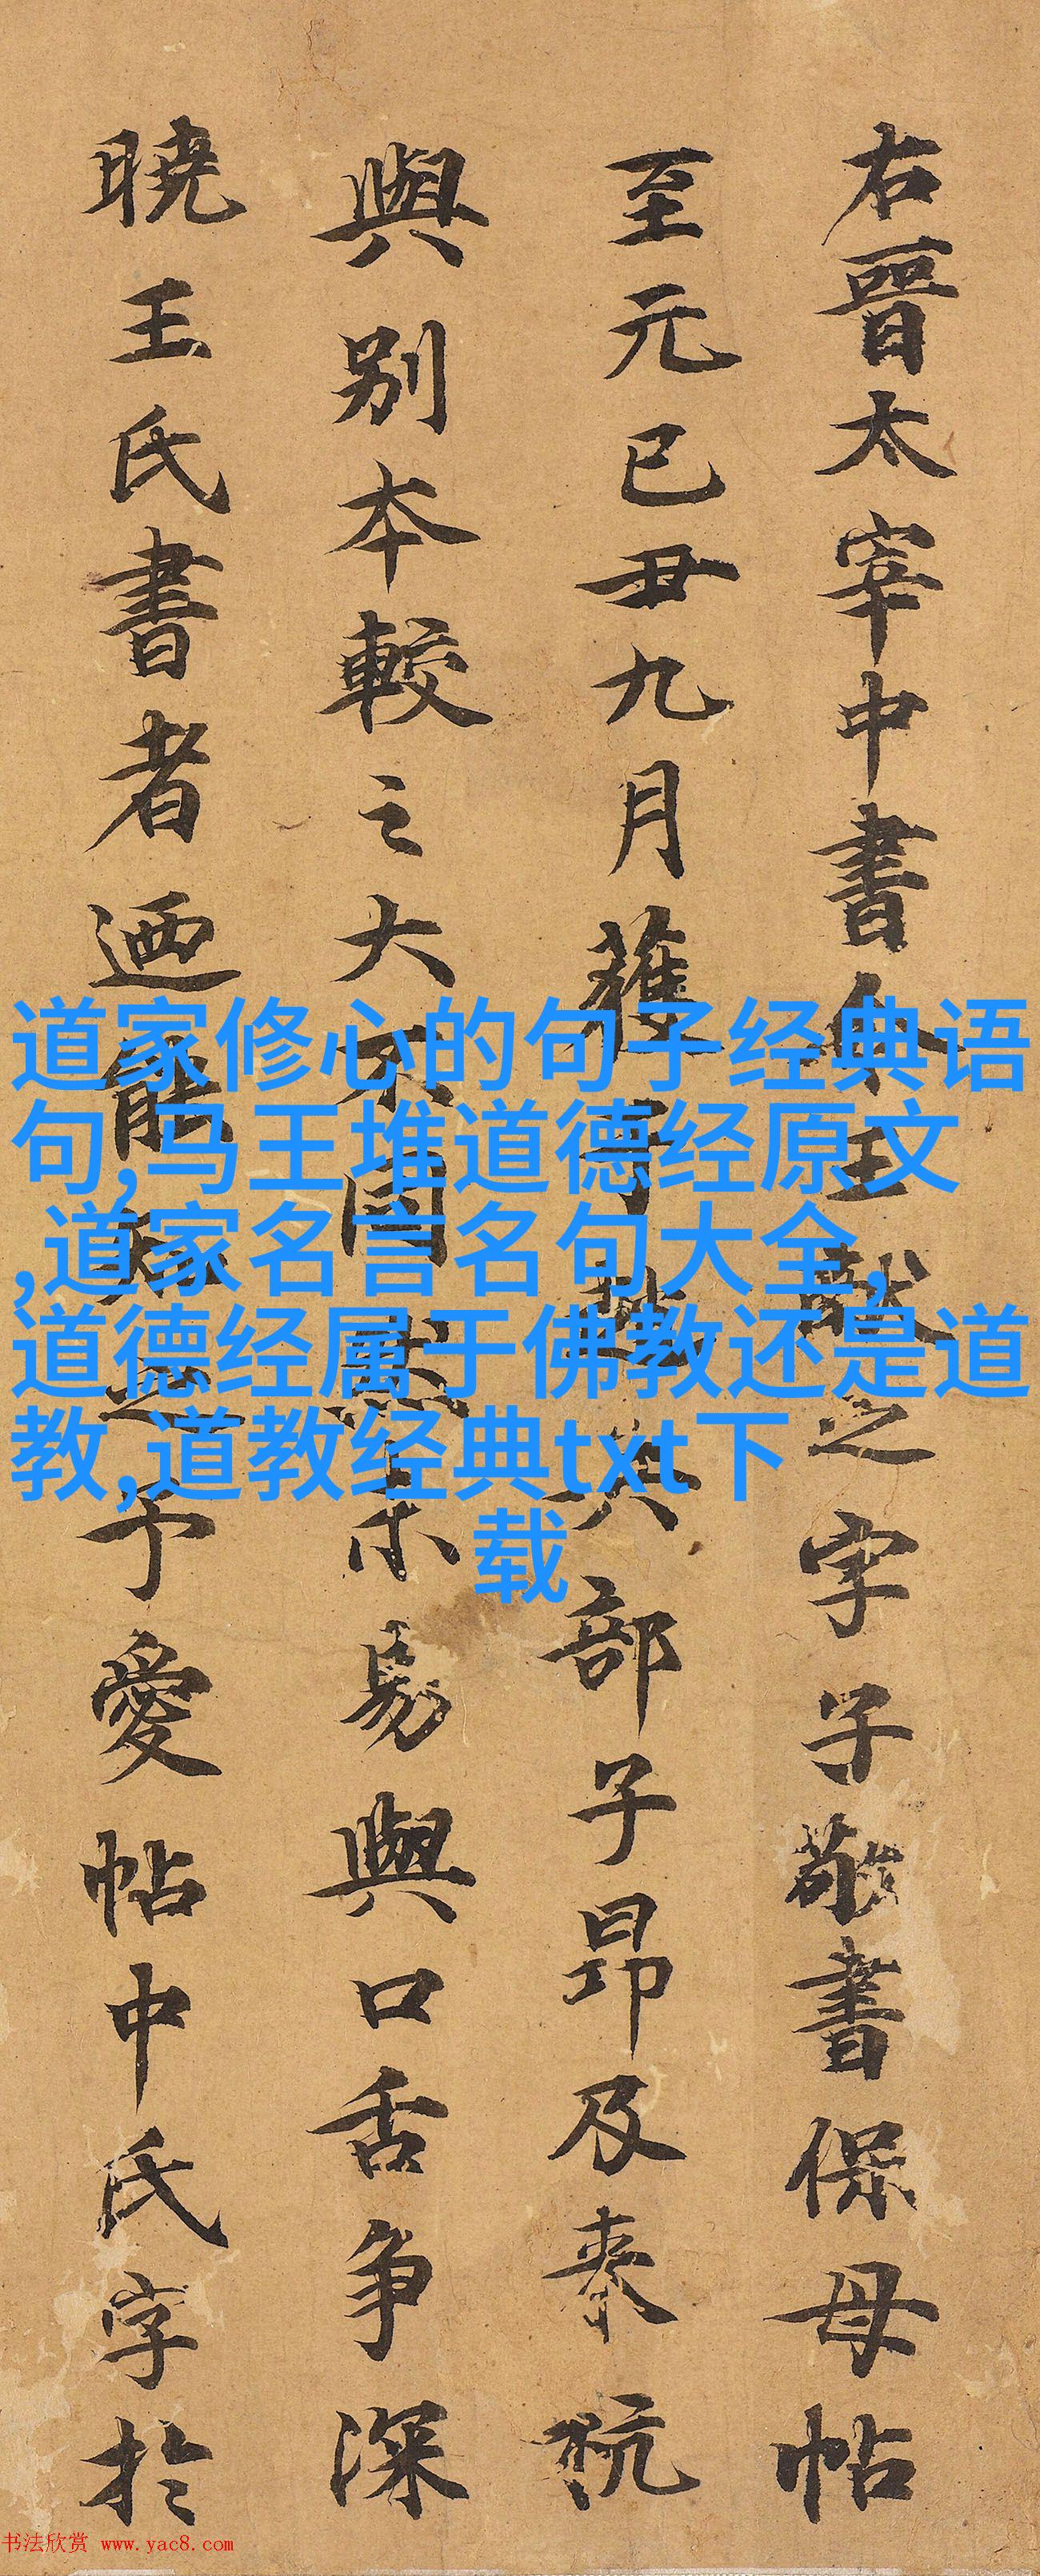 右晉太宰中書令王獻之字子敬書保母帖
至元已丑九月獲于越部子昂及泰
與別本較之大不同然未易與口舌争深
曉王氏書者迺能知之予愛帖中氏字於
道家修心的句子经典语
句,马王堆道德经原文
,道家名言名句大全,
道德经属于佛教还是道
教,道教经典txt下
载
书法欣赏 www.yac8.com